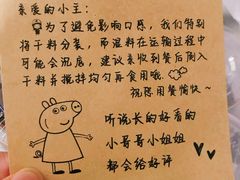 亲爱的小主:
为了避免影响口感,我们特别
将干料分装,而湿料在运输过程中
可能会沉底,建议亲收到餐后倒入
干料并搅拌均匀再食用哦~
祝您用餐愉快~
听说长的好看的
小哥哥小姐姐
都会给好评